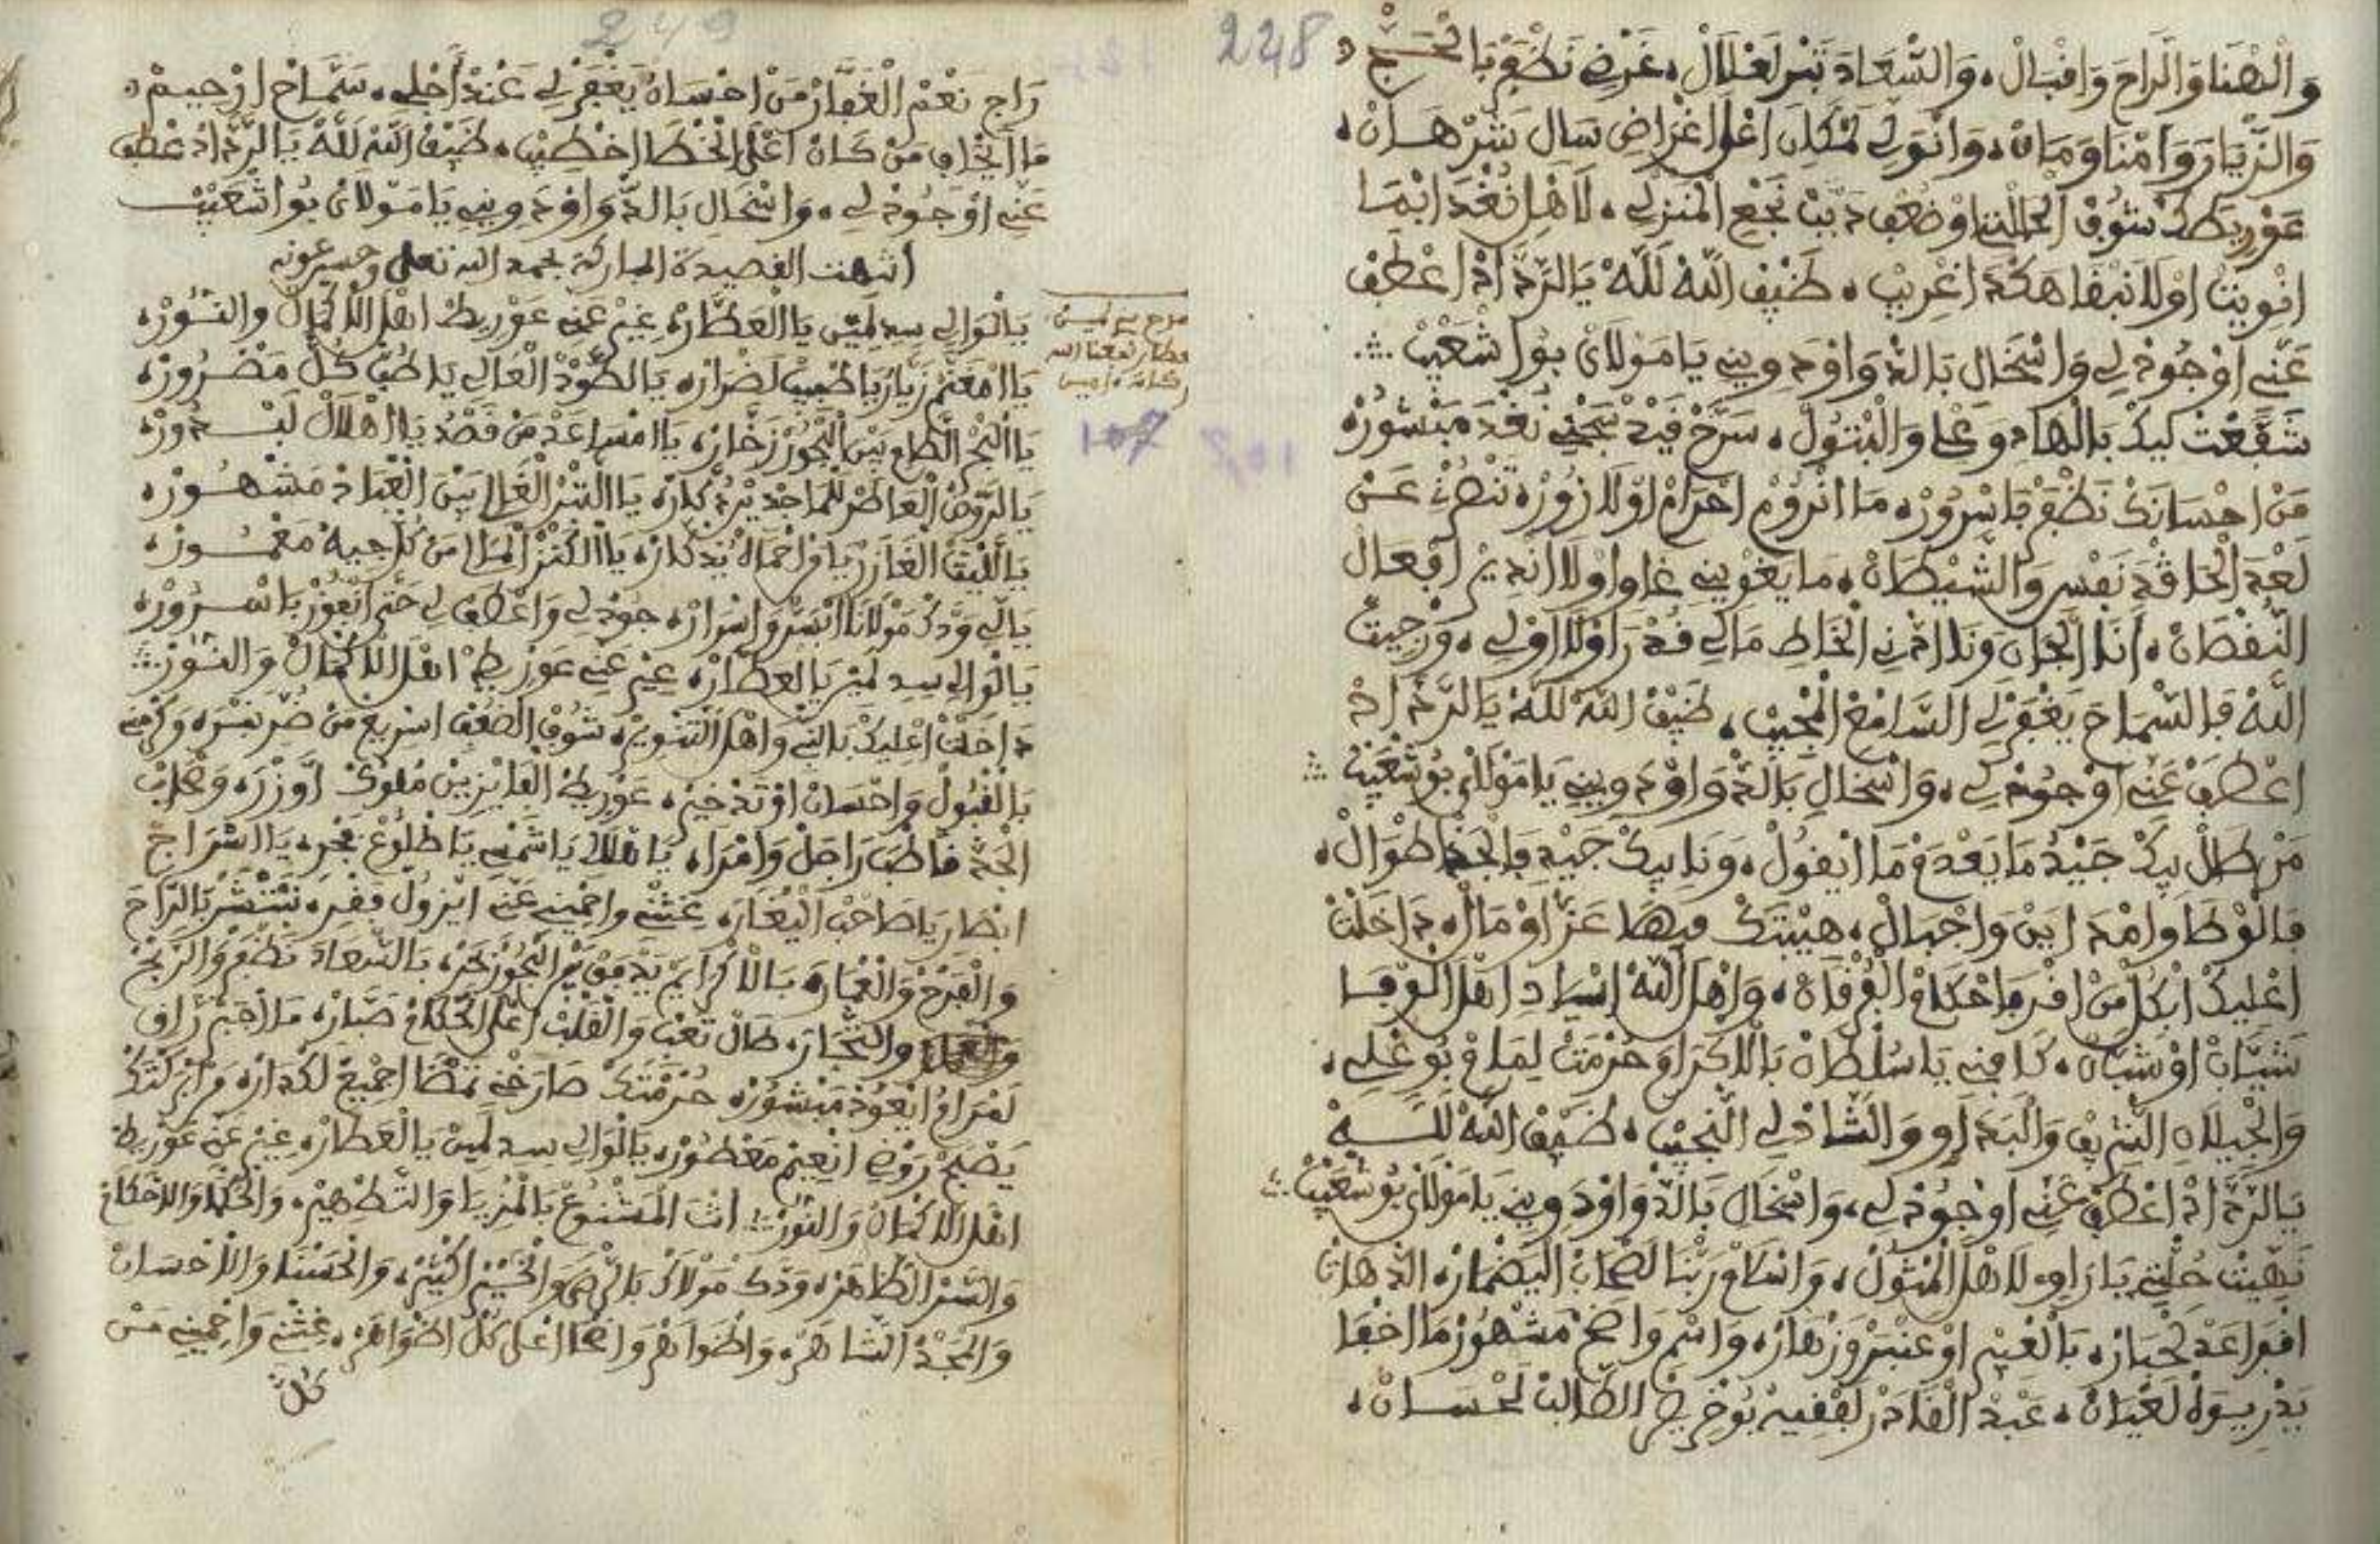 228
وَالْهْنَا وَالرَّاحَ وَاقْبَالْ، وَالسَّعَادَ تَبْرَ لَعْلَالْ، غَرْضِ نَظْفَرْ بَالْحَجّْ
وَالزّْيَارَ وَامْنَا وَمَانْ، وَانْوَلِّي لَمْكَانِ اعْلَى اغْرَاضِ سَالَ بَشَرْهَانْ،
عَوْرِيطَكْ شُوفْ الْحَالْتِنَا وْضُعْفِ دَبَّتْ نَجْعِ الْمَنْزَلِي، لَاهْلِ نَغْدَ ايْمَا
انْوِيتْ اوْلَا نَبْقَا هَكْدَ اغْرِيبْ، ضَيْفْ اللَّهْ لَلَّهْ يَا الرَّدَّادْ اعْطَفْ
عَنِّي اوْجُودْ لِي وَاسْخَالِ بَالدّْوَا وَدَاوِينِي يَا مَوْلَايْ بُو اشْعَيْبْ
شَفَّعْتْ لِيكْ بَالْهَادِ وَعْلِي وَالْبْتُولْ، سَرَّحْ قَيْدْ سَجْنِي نَغْدَ مَيْسُورْ
مَنْ احْسَانَكْ نَظْفَرْ بَاسْرُورْ، مَا انْرُومْ احْرَامْ اوْلَا زُورْ، تَنْصْرْنْ عَنْ
لَعْدَ الْحَاقْدَ نَفْسِ وَالشّيْطَانْ، مَا يَغْوِينِي غَاوِ اوْلَا انْدِيرْ افْعَالْ
النُّقْصَانْ، أَنَا الْجَانِ وَنَا امْدْنِي الْخَاطِي مَالِي قُدْرَ اوْلَا اوْلِي، وَرْجِيتْ
اللَّهْ فَالسّْمَاحَ يَغْفَرْ لِي السَّامَعْ الْمُجِيبْ، ضَيْفْ اللَّهْ لَلَّهْ يَا الرَّدَّادْ
اعْطَفْ عَنِّي اوْجُودْ لِي، وَاسْخَالِ بَالدّْوَا وْدَاوِينِي يَا مَوْلَايْ بُو شْعَيْبْ
مَنْ طَالْ بِيكْ جَيْدُ مَا يَعْدَمْ مَا ايْقُولْ، وَنَا بِيكْ جَيْدِ فَالْحَدّْ اطْوَالْ،
فَالْوْطَا وَامْدَايَنْ وَاجْبَالْ، هِيبْتَكْ فِيهَا عَزّْ اوْمَالْ، دَاخَلْتْ
اعْلِيكْ ابْكُلّْ مَنْ اقْرَ فَاحْكَامْ الْفُرْقَانْ، وَاهْلْ اللَّهْ اسْيَادِ اهْلْ الْوْفَا
شَيَّابْ اوْ شَبَّانْ، كَافِينِي يَا سُلْطَانْ بَالَاكْرَامْ حُرْمَتْ لِمَامْ بُو عْلِي،
وَالْجِيلَانِ الشّْرِيفْ وَالْبَدَاوِي وَالشَّادْلِي النّْجِيبْ، ضَيْفْ اللَّهْ لَلَّهْ
يَا الرَّدَّادْ اعْطَفْ عَنِّي اوْجُودْ لِي، وَاسْخَالِ بَالدّْوَا وْدَاوِينِي يَا مَوْلَايْ بُو شْعَيْبْ
نَهِّيتْ حُلّْتِي يَا رَاوِي لَاهْلْ الْمْثُولْ، وَاسْلَامْ رَبّْنَا لَصْحَابْ الْيَضْمَارْ، الدّْهَاتْ
افْوَاعَدْ لَخْبَارْ، بَالْغِيرْ اوْعَنْبَرْ وَزْهَارْ، وَاسْمِ وَاضَحْ مَشْهُورْ مَا اخْفَا
يَدْرِيوَهْ لَعْيَانْ، عَبْدْ الْقَادَرْ لَفْقِيهْ بُوخْرِيصْ الطَّالَبْ لَحْسَانْ،
249
رَاجِ نَعْمْ الْغَفَّارْ مَنْ احْسَانُ يَغْفَرْ لِي عَنْدْ أَجْلِي، سَمَّاحْ ارْحِيمْ
مَا ايْخَافِ مَنْ كَانْ اعْلَى الْخْطَا اخْطِيبْ، ضَيْفْ اللَّهْ لَلَّهْ يَا الرَّدَّادْ عْطَفْ
عَنِّي اوْجُودْ لِي، وَاسْخَالِ بَالدّْوَا وْدَاوِينِي يَا مَوْلَايْ بُو اشْعَيْبْ
انتهت القصيدة المباركة بحمد الله تعلى وحسن عونه
مدح سيد لمين
العطار نفعنا الله
ببركاته ءامين
107
يَا لْوَالِي سِيدِ لَمِينْ يَا الْعَطَّارْ، غِيرْ عَنِّي عَوْرِيطْ اهْلْ الَاكْمَالْ وَالنُّورْ،
يَا امْغَنَّمْ زَيَّارُ يَا طْبِيبْ لَضْرَارْ، يَا الطَّوْدْ الْعَالِي يَا طُبّْ كُلّْ مَضْرُورْ،
يَا الْبَحْرْ الطَّامِ بِينْ الْبْحُورْ زَخَّارْ، يَا امْسَاعَدْ مَنْ قَصْدُ يَا اهْلَالْ لَبْدُورْ،
يَا الرَّوْضْ الْعَاطَرْ لَلْمَاجْدِينْ تَدْكَارْ، يَا السَّرّْ الْغَالِي بِينْ الْعْبَادْ مَشْهُورْ،
يَا اللِّيثْ الْغَازَرْ يَا فْرَاحْمَاهْ يَنْدْكَارْ، يَا الْكَنْزْ الْمْلَا مَنْ كُلّْ جِيهْ مَعْمُورْ،
يَا لِّي وَدَّكْ مَوْلَانَا ابْسَرّْ وَاسْرَارْ، جُودْ لِي وَاعْطَفْ لِي حَتَّى انْفُوزْ بَاسْرُورْ،
يَا لْوَالِي سِيدِ لَمِينْ يَا الْعَطَّارْ، غِيرْ عَنِّي عَوْرِيطْ اهْلْ الَاكْمَالْ وَالنُّورْ
دَاخَلْتْ اعْلِيكْ بَالنّْبِي وَاهْلْ التَّنْوِيرْ، شُوفْ الضُّعْفِ اسْرِيعْ مَنْ ضُرِّ نَبْرَ، وَكْرَمْنِي
بَالْقْبُولْ وَاحْسَانْ اوْتَدْخِيرْ، عَوْرِيطْ الْفَايْزِينْ مْلُوكْ اوْزْرَ، وَصْحَابْ
الْجَدْ فَاطْبَ رَاجَلْ وَامْرَا، يَا هْلَالِي يَا شَمْسِي يَا طْلُوعْ فَجْرِ، يَا السْرَاجْ
ابْصَارِ يَا صَاحَبْ الْيْغَارَ، غِثْنِي وَاحْمِينِي عَنِّي ايْزُولْ فَقْرِ، نَبْتْشَرْ بَالرَّاحَ
وَالْفْرَحْ وَالْغْمَارَ، بَالَاكْرَايَمْ يَدْفَقْ مْنَ الْبْحُورْ بَحْرِ، بَالسّْعَادَ نَظْفَرْ وَالرَّبْحْ
وَالتّْجَارَ، طَالْ تَعْبِ وَالْقَلْبْ اعْلَى الْحْكَامْ صَبَّارْ، مَا اجْبَرْ رَاقِي
لَمْرَامُ ايْعُودْ مَيْسُورْ، حُرْمْتَكْ صَارَخْنِي تَمْضَا اجْمِيعْ لَكْدَارْ، وَمْنْ بَرَكْتَكْ
يَصْبَحْ رَوْضِي انْعِيمْ مَعْطُورْ، يَا لْوَالِي سِيدِ لَمِينْ يَا الْعَطَّارْ، غِيرْ عَنِّي عَوْرِيطْ
اهْلْ الَاكْمَالْ وَالنُّورْ أنْتَ الْمَشْنُوعْ بَالْمْزِيَا وَالتَّطْهِيرْ، وَالْحُكْمَا وَالَاحْكَامْ
وَالسَّرّْ الظَّاهَرْ، وَدَّكْ مَوْلَاكْ بَالرّْضَى وَالْخِيرْ اكْثِيرْ، وَالْحَسْنَا وَالَاحْسَانْ
وَالْمَجْدْ الشَّاهَرْ، وَاطْوَاهَرْ وَاضْحَا اعْلَى كُلّْ اظْوَاهَرْ، غِثْنِي وَاحْمِينِي مَنْ
كُلّْ